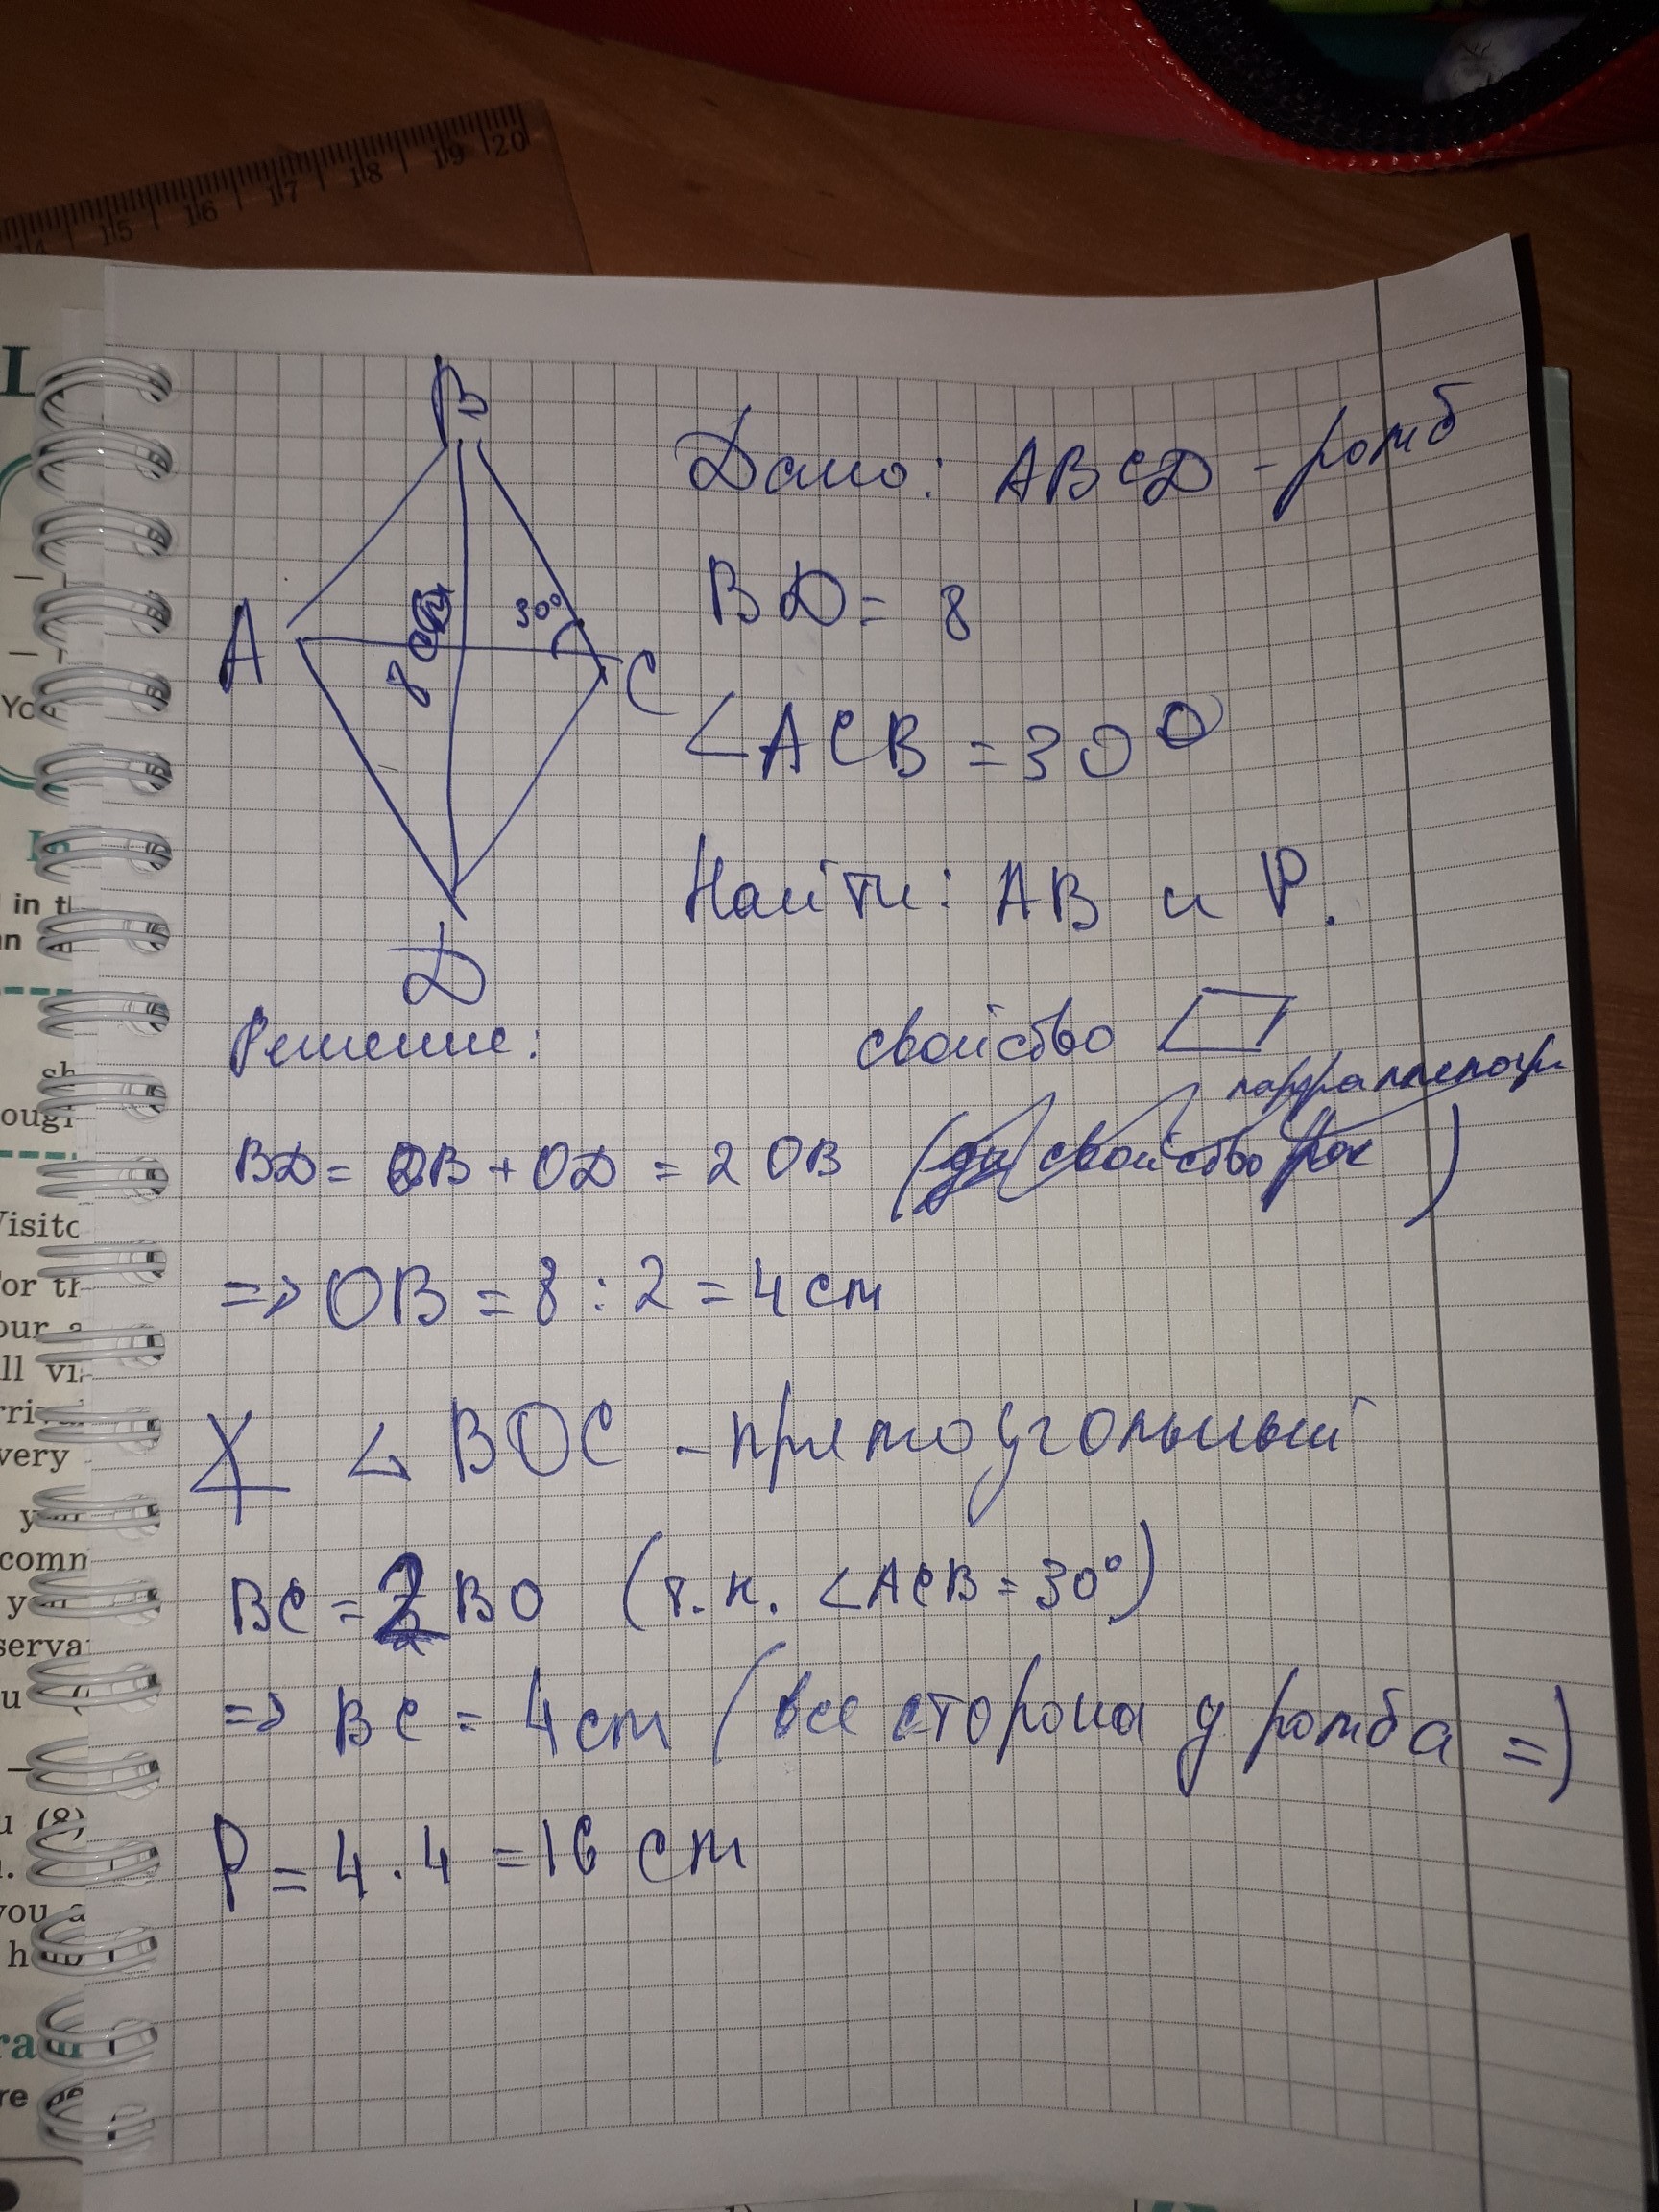 14 15 16 17 18 19 20
B
Дано: ABCD - ромб
BD = 8
A
30°
8
C
∠ACB = 30°
Найти: AB и P.
D
Решение:
свойство ▱
BD = OB + OD = 2 OB ( свойство )
=> OB = 8 : 2 = 4 см
∆ BOC - прямоугольный
BC = 2 BO (т.к. ∠ACB = 30°)
=> BC = 4 см (все сторона у ромба =)
P = 4 · 4 = 16 см
in
ough
Visito
or th
our a
ll vi
very
comn
y
serva
u (8)
you a
h
ra
re